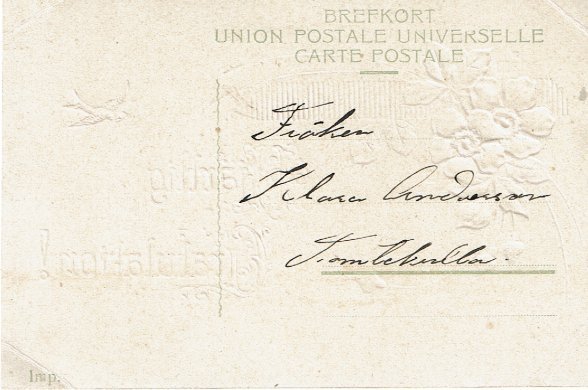 BREFKORT
UNION POSTALE UNIVERSELLE
CARTE POSTALE
Fröken
Klara Andersson
Tomtekulla.
Hjärtlig
Gratulation!
Imp.